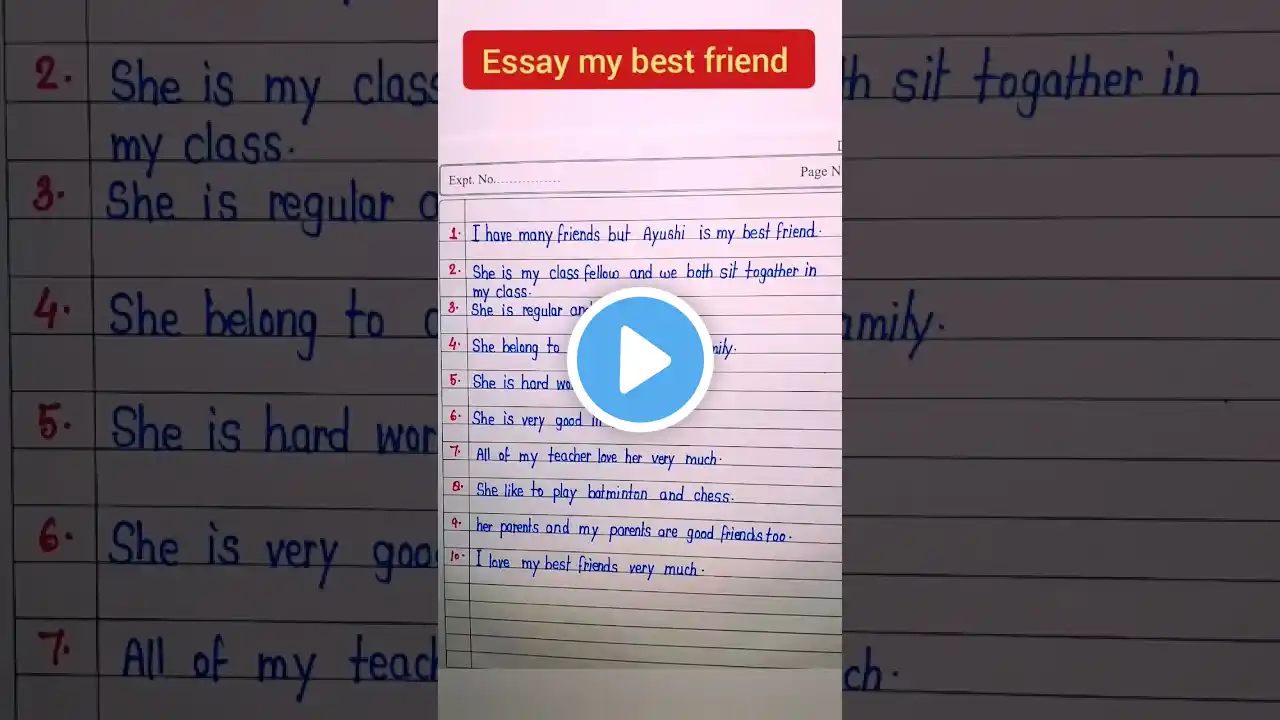 Essay my best friend
Expt. No...............
Page N
1. I have many friends but Ayushi is my best friend.
2. She is my class fellow and we both sit togather in
my class.
3. She is regular
4. She belong to
5. She is hard
6. She is very good
7. All of my teacher love her very much.
8. She like to play batminton and chess.
9. her parents and my parents are good friends too.
10. I love my best friends very much.
2. She is my class
sit togather in
my class.
3. She is regular
4. She belong to
5. She is hard
6. She is very
7. All of my